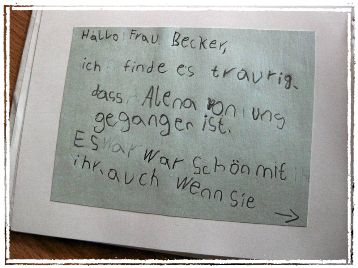 Hallo Frau Becker,
ich finde es traurig.
dass Alena von ung
gegangen ist.
Es war war schön mit
ihr. auch wenn sie
→